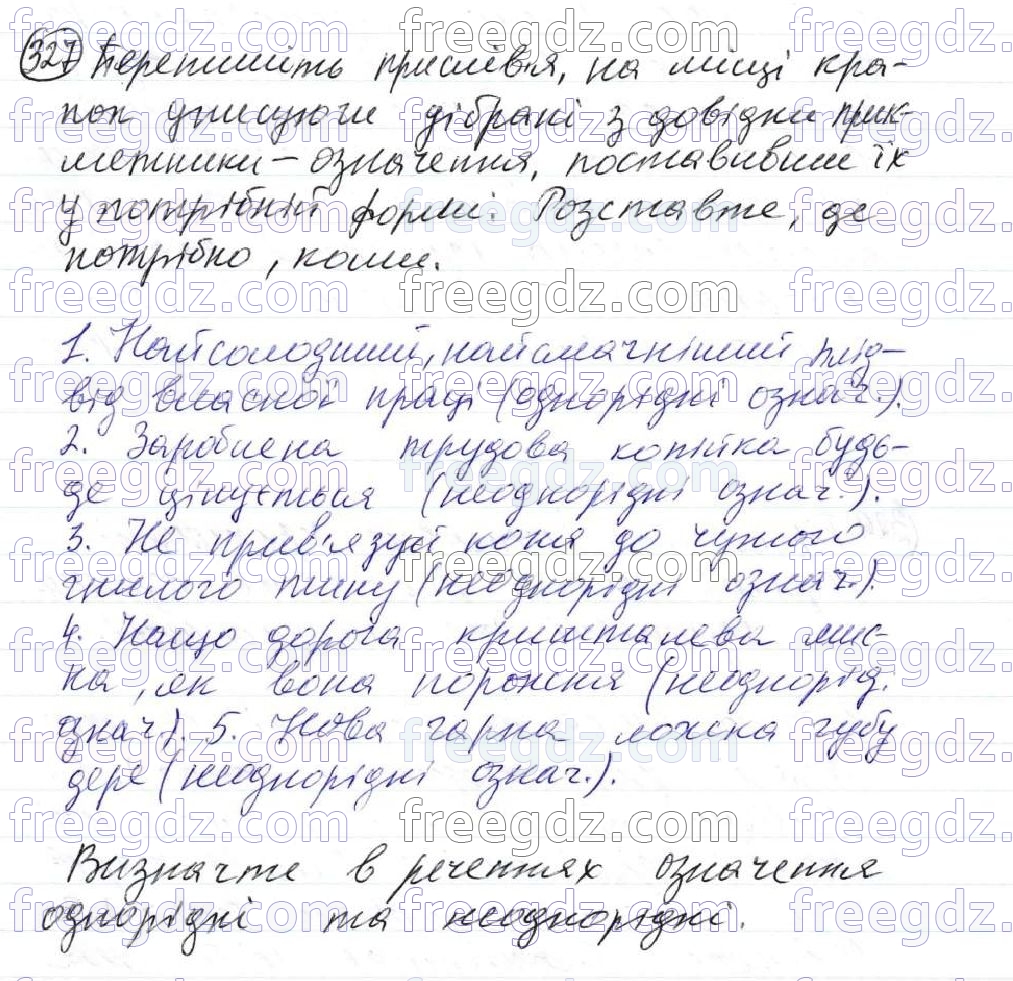 327 Перепишіть прислів'я, на місці кра-
пок уписуючи дібрані з довідки прик-
метники – означення, поставивши їх
у потрібній формі. Розставте, де
потрібно, коми.
1. Найсолодший, найсмачніший плід –
від власної праці (однорідні означ.).
2. Зароблена трудова копійка будь-
де цінується (неоднорідні означ.).
3. Не прив'язуй коня до чужого
гнилого тину (неоднорідні означ.).
4. Нащо дорога кришталева мис-
ка, як вона порожня (неоднорід.
означ.). 5. Нова гарна ложка губу
дере (неоднорідні означ.).
Визначте в реченнях означення
однорідні та неоднорідні.